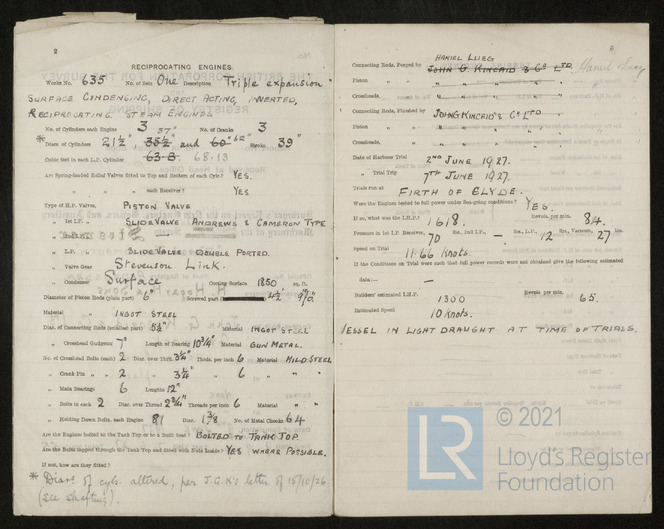 2
RECIPROCATING ENGINES.
Works No. 635 No. of Sets One Description Triple expansion
SURFACE CONDENSING, DIRECT ACTING, INVERTED,
RECIPROCATING STEAM ENGINES
No. of Cylinders each Engine 3 No. of Cranks 3
37"
* Diars. of Cylinders 21½", 35½" and 60" 62" Stroke 39"
Cubic feet in each L.P. Cylinder 63.8 68.13
Are Spring-loaded Relief Valves fitted to Top and Bottom of each Cylr.? YES.
" " " each Receiver? YES
Type of H.P. Valves, PISTON VALVE
" 1st I.P. " SLIDE VALVE ANDREWS & CAMERON TYPE
" 2nd I.P. " —
" L.P. " SLIDE VALVE DOUBLE PORTED.
" Valve Gear Stevenson Link.
" Condenser Surface Cooling Surface 1850 sq. ft.
Diameter of Piston Rods (plain part) 6" Screwed part 4½"
Material " INGOT STEEL
Diar. of Connecting Rods (smallest part) Material INGOT STEEL
" Crosshead Gudgeons 7" Length of Bearing 10¾" Material GUN METAL.
No. of Crosshead Bolts (each) 2 Diar. over Thrd. 3¼" Thrds. per inch 6 Material MILD STEEL
" Crank Pin " " 2 " 3¼" " 6 " "
" Main Bearings 6 Lengths 12"
" Bolts in each 2 Diar. over Thread 2¾" Threads per inch 6 Material " "
" Holding Down Bolts, each Engine 81 Diar. 1⅜ No. of Metal Chocks 64
Are the Engines bolted to the Tank Top or to a Built Seat? BOLTED TO TANK TOP
Are the Bolts tapped through the Tank Top and fitted with Nuts Inside? YES WHERE POSSIBLE.
If not, how are they fitted?
* Diars. of cyls. altered, per J.G.K's letter of 15/10/26
(see shafting).
HANIEL LUEG
Connecting Rods, Forged by JOHN G. KINCAID & Co LTD. Haniel Lueg
Piston " " " " "
Crossheads, " " " " "
Connecting Rods, Finished by JOHN G KINCAID & Co LTD.
Piston " " " " "
Crossheads, " " " " "
Date of Harbour Trial 2ND JUNE 1927.
" Trial Trip 7TH JUNE 1927.
Trials run at FIRTH OF CLYDE.
Were the Engines tested to full power under Sea-going conditions? YES.
If so, what was the I.H.P.? 1618. Revols. per min. 84.
Pressure in 1st I.P. Receiver, 70 lbs., 2nd I.P., — lbs., L.P., 12 lbs., Vacuum, 27 ins.
Speed on Trial 11.66 Knots.
If the Conditions on Trial were such that full power records were not obtained give the following estimated
data:—
Builders' estimated I.H.P. 1300 Revols. per min. 65.
Estimated Speed 10 Knots.
VESSEL IN LIGHT DRAUGHT AT TIME OF TRIALS.
LR
© 2021
Lloyd's Register
Foundation